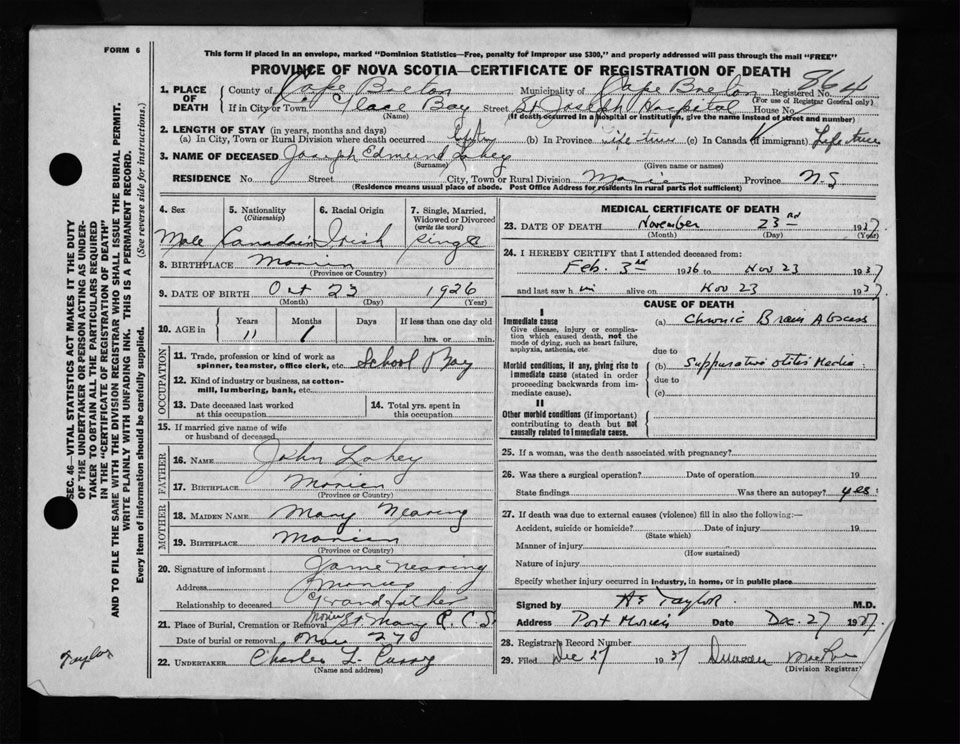 FORM 6
This form if placed in an envelope, marked "Dominion Statistics—Free, penalty for improper use $300," and properly addressed will pass through the mail "FREE"
PROVINCE OF NOVA SCOTIA—CERTIFICATE OF REGISTRATION OF DEATH
1. PLACE OF DEATH
County of Cape Breton Municipality of Cape Breton Registered No. 864
(For use of Registrar General only)
If in City or Town Glace Bay Street St Joseph Hospital House No.
(Name) (If death occurred in a hospital or institution, give the name instead of street and number)
2. LENGTH OF STAY (in years, months and days)
(a) In City, Town or Rural Division where death occurred (b) In Province life time (c) In Canada (if immigrant) Life time
3. NAME OF DECEASED Joseph Edmund Lahey
(Surname) (Given name or names)
RESIDENCE No. Street City, Town or Rural Division Morien Province N.S
(Residence means usual place of abode. Post Office Address for residents in rural parts not sufficient)
4. Sex
Male
5. Nationality
(Citizenship)
Canadain
6. Racial Origin
Irish
7. Single, Married, Widowed or Divorced
(write the word)
single
8. BIRTHPLACE Morien
(Province or Country)
9. DATE OF BIRTH Oct 23 1926
(Month) (Day) (Year)
10. AGE in
Years Months Days If less than one day old
11 1 hrs. or min.
OCCUPATION
11. Trade, profession or kind of work as
spinner, teamster, office clerk, etc. School Boy
12. Kind of industry or business, as cotton-
mill, lumbering, bank, etc.
13. Date deceased last worked
at this occupation
14. Total yrs. spent in
this occupation
15. If married give name of wife
or husband of deceased
FATHER
16. NAME John Lahey
17. BIRTHPLACE Morien
(Province or Country)
MOTHER
18. MAIDEN NAME Mary Nearing
19. BIRTHPLACE Morien
(Province or Country)
20. Signature of informant Nearing
Address Morien
Relationship to deceased Grandfather
21. Place of Burial, Cremation or Removal Morien St Mary R. C. S.
Date of burial or removal
22. UNDERTAKER Charles L.
(Name and address)
MEDICAL CERTIFICATE OF DEATH
23. DATE OF DEATH November 23rd 1937
(Month) (Day) (Year)
24. I HEREBY CERTIFY that I attended deceased from:
Feb. 3rd 1936 to Nov 23 1937
and last saw h im alive on Nov 23 1937
CAUSE OF DEATH
I
Immediate cause
Give disease, injury or complica-
tion which caused death, not the
mode of dying, such as heart failure,
asphyxia, asthenia, etc.
(a) Chronic Brain Abscess
due to
Morbid conditions, if any, giving rise to
immediate cause (stated in order
proceeding backwards from im-
mediate cause).
(b) Suppurative otitis Media
due to
(c)
II
Other morbid conditions (if important)
contributing to death but not
causally related to immediate cause.
25. If a woman, was the death associated with pregnancy?
26. Was there a surgical operation? Date of operation 19
State findings Was there an autopsy? yes
27. If death was due to external causes (violence) fill in also the following:—
Accident, suicide or homicide? Date of injury 19
(State which)
Manner of injury
(How sustained)
Nature of injury
Specify whether injury occurred in industry, in home, or in public place
Signed by AE Taylor M.D.
Address Port Morien Date Dec. 27 1937.
28. Registrar's Record Number
29. Filed Dec 27 1937
(Division Registrar)
SEC. 46—VITAL STATISTICS ACT MAKES IT THE DUTY
OF THE UNDERTAKER OR PERSON ACTING AS UNDER-
TAKER TO OBTAIN ALL THE PARTICULARS REQUIRED
IN THE "CERTIFICATE OF REGISTRATION OF DEATH"
AND TO FILE THE SAME WITH THE DIVISION REGISTRAR WHO SHALL ISSUE THE BURIAL PERMIT.
WRITE PLAINLY WITH UNFADING INK. THIS IS A PERMANENT RECORD.
Every item of information should be carefully supplied. (See reverse side for instructions.)
Taylor